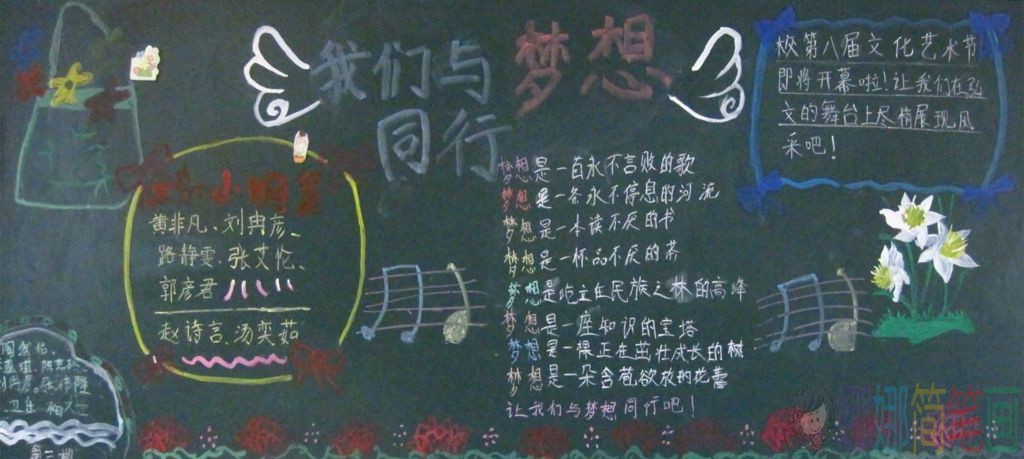 我们与梦想
同行
校第八届文化艺术节
即将开幕啦！让我们在弘
文的舞台上尽情展现风
采吧！
黄非凡、刘冉彦、
路静雯、张艾忆、
郭彦君
赵诗言、汤奕茹
梦想是一首永不言败的歌
梦想是一条永不停息的河流
梦想是一本读不厌的书
梦想是一杯品不厌的茶
梦想是屹立在民族之林的高峰
梦想是一座知识的宝塔
梦想是一棵正在茁壮成长的树
梦想是一朵含苞欲放的花蕾
让我们与梦想同行吧！
第三期
娜简笔画